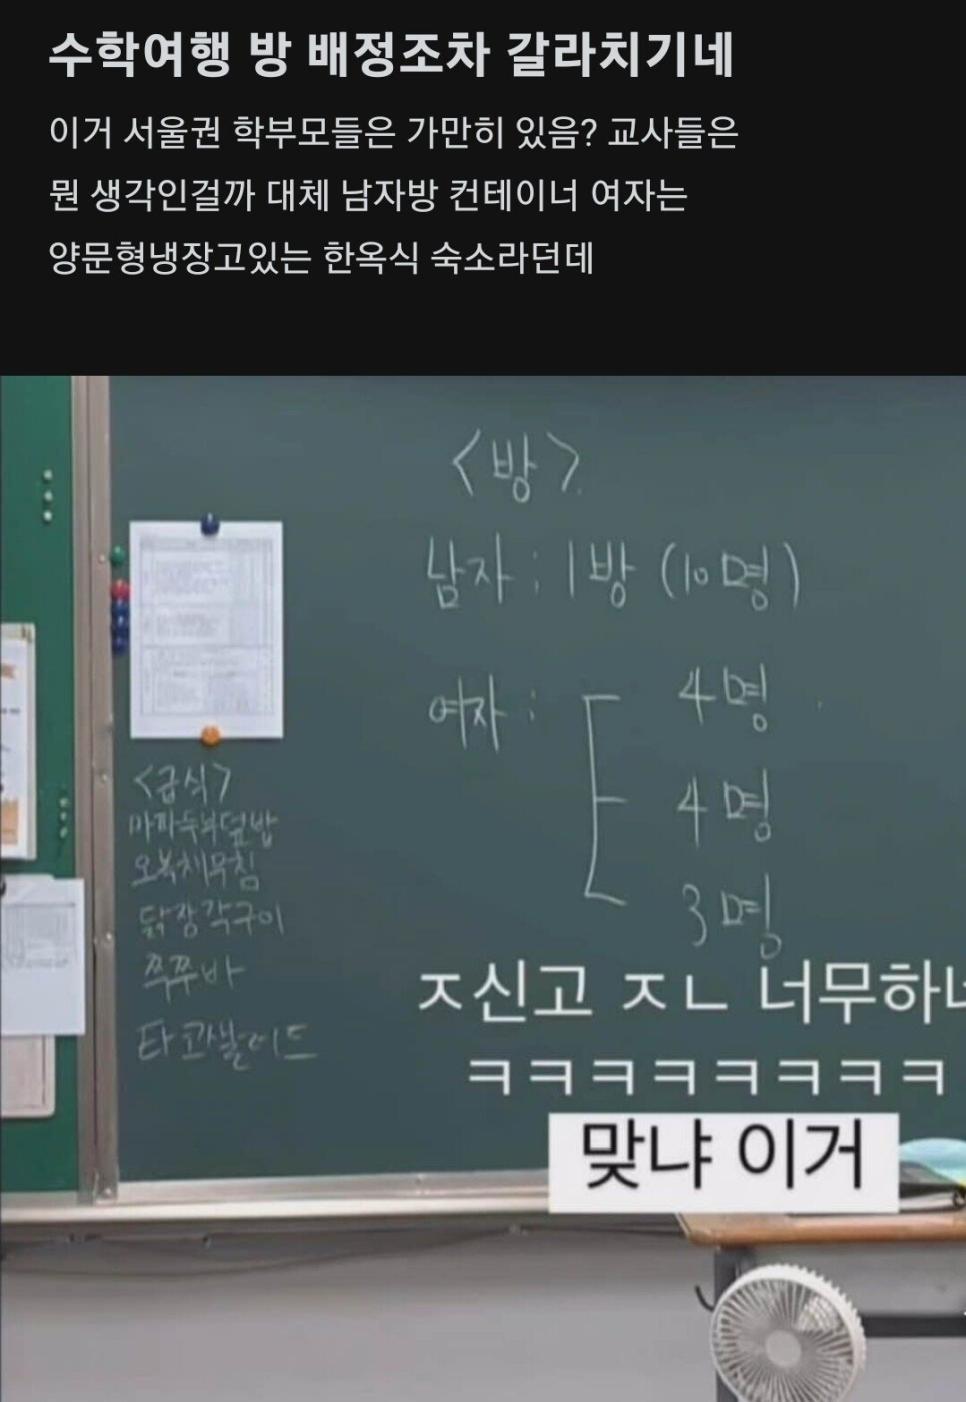 수학여행 방 배정조차 갈라치기네
이거 서울권 학부모들은 가만히 있음? 교사들은
뭔 생각인걸까 대체 남자방 컨테이너 여자는
양문형냉장고있는 한옥식 숙소라던데
<방>
남자 : 1방 (10명)
여자 :
4명
4명
3명
<급식>
마파두부덮밥
오복채무침
닭장각구이
쭉쭈바
타코샐러드
ㅈ신고 ㅈㄴ 너무하네
ㅋㅋㅋㅋㅋㅋㅋㅋ
맞냐 이거